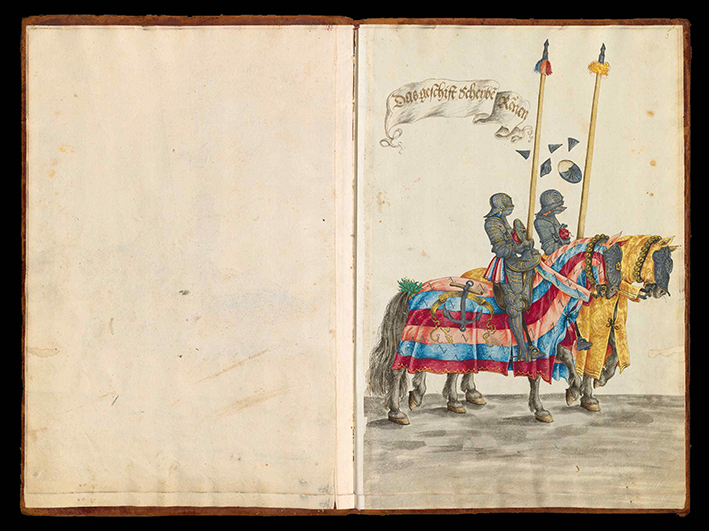 Das geschift Scheibē Rēnen